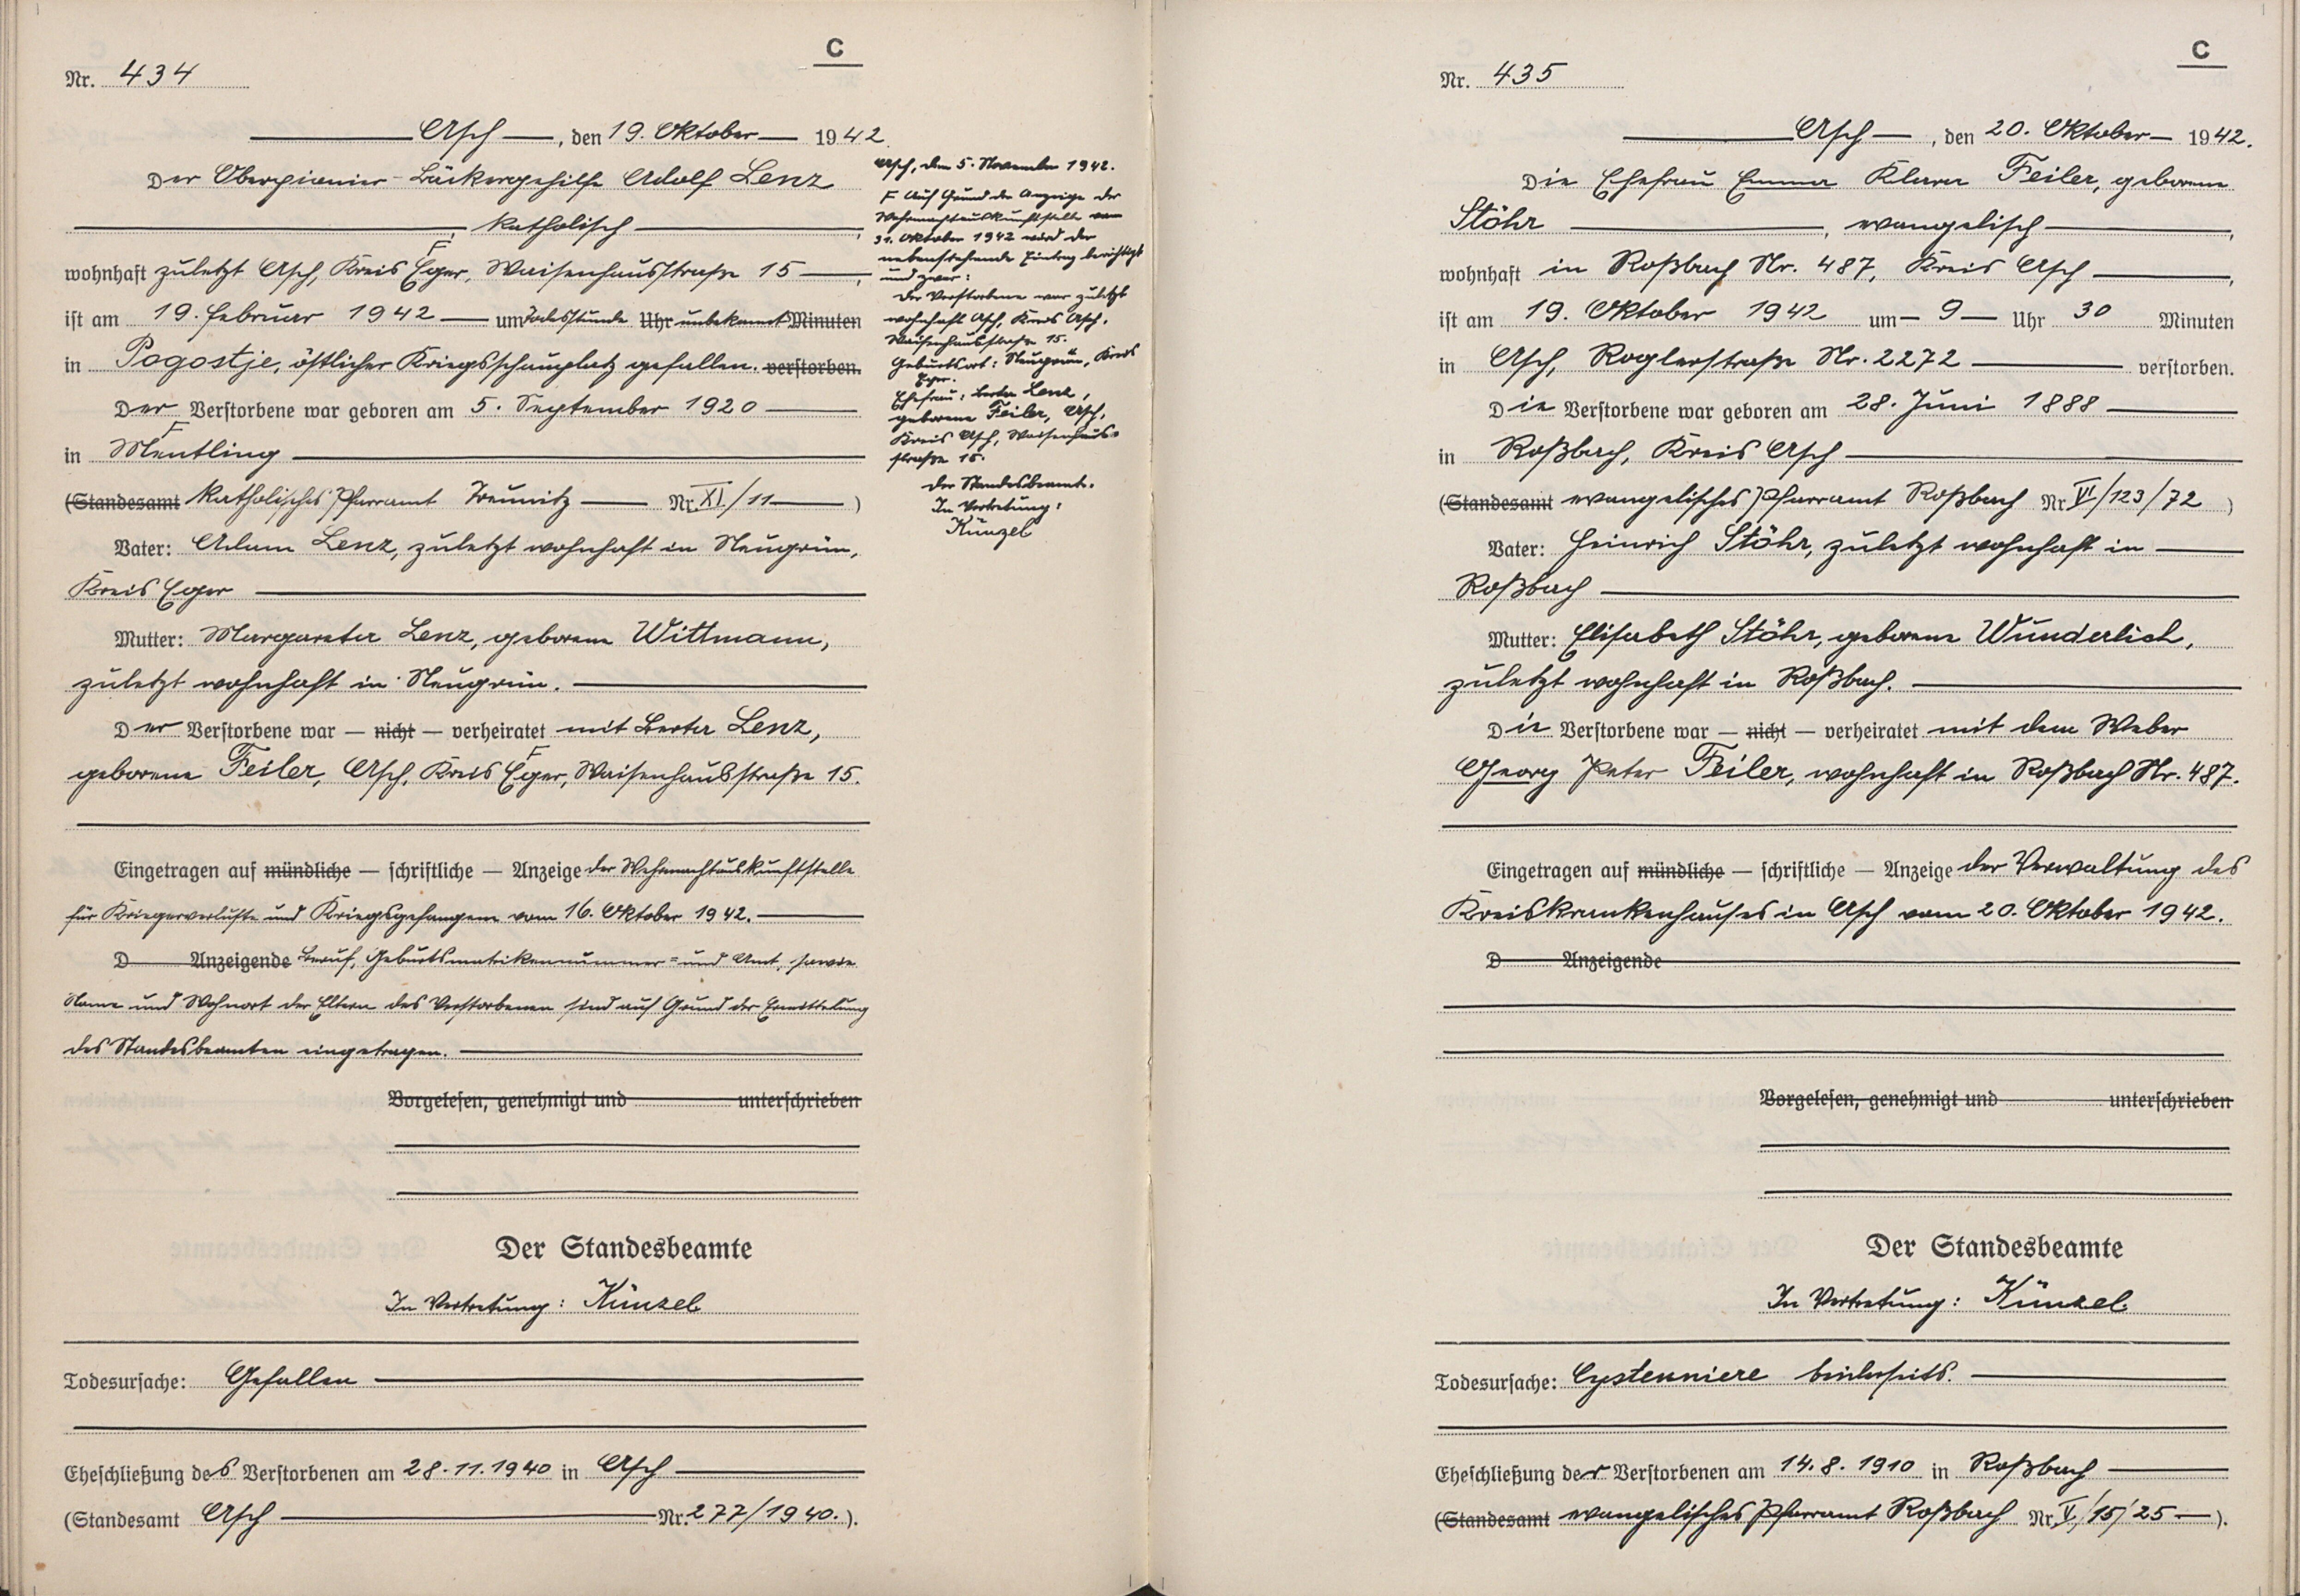 C
Nr. 434
Asch, den 19. Oktober 1942.
Der Oberpionier - Bäckergehilfe Adolf Lenz
, katholisch ,
wohnhaft zuletzt Asch, Kreis Eger, Waisenhausstraße 15 ,
ist am 19. Februar 1942 um Todesstunde Uhr unbekannt Minuten
in Pogostje, östlicher Kriegsschauplatz gefallen. verstorben.
Der Verstorbene war geboren am 5. September 1920
in Mentling
(Standesamt katholisches Pfarramt Treunitz Nr. XI./11 )
Vater: Adam Lenz, zuletzt wohnhaft in Neugrün,
Kreis Eger
Mutter: Margareta Lenz, geborene Wittmann,
zuletzt wohnhaft in Neugrün.
Der Verstorbene war — nicht — verheiratet mit Berta Lenz,
geborene Feiler, Asch, Kreis Eger, Waisenhausstraße 15.
Eingetragen auf mündliche — schriftliche — Anzeige der Wehrmachtauskunftstelle
für Kriegerverluste und Kriegsgefangene vom 16. Oktober 1942.
D Anzeigende Beruf, Geburtsmatrikennummer= und Amt, sowie
Name und Wohnort der Eltern des Verstorbenen sind auf Grund der Ermittelung
des Standesbeamten eingetragen.
Vorgelesen, genehmigt und unterschrieben
Der Standesbeamte
In Vertretung: Künzel
Todesursache: Gefallen
Eheschließung des Verstorbenen am 28.11.1940 in Asch
(Standesamt Asch Nr. 277/1940.).
Asch, den 5. November 1942.
F Auf Grund der Anzeige der
Wehrmachtauskunftstelle vom
31. Oktober 1942 wird der
nebenstehende Eintrag berichtigt
und zwar:
Der Verstorbene war zuletzt
wohnhaft Asch, Kreis Asch,
Waisenhausstraße 15.
Geburtsort: Neugrün, Kreis
Eger.
Ehefrau: Berta Lenz,
geborene Feiler, Asch,
Kreis Asch, Waisenhaus=
straße 15.
Der Standesbeamte.
In Vertretung:
Künzel
C
Nr. 435
Asch, den 20. Oktober 1942.
Die Ehefrau Emma Klara Feiler, geborene
Stöhr , evangelisch ,
wohnhaft in Roßbach Nr. 487, Kreis Asch ,
ist am 19. Oktober 1942 um 9 Uhr 30 Minuten
in Asch, Roglerstraße Nr. 2272 verstorben.
Die Verstorbene war geboren am 28. Juni 1888
in Roßbach, Kreis Asch
(Standesamt evangelisches Pfarramt Roßbach Nr. VI/123/72 )
Vater: Heinrich Stöhr, zuletzt wohnhaft in
Roßbach
Mutter: Elisabeth Stöhr, geborene Wunderlich,
zuletzt wohnhaft in Roßbach.
Die Verstorbene war — nicht — verheiratet mit dem Weber
Georg Peter Feiler, wohnhaft in Roßbach Nr. 487.
Eingetragen auf mündliche — schriftliche — Anzeige der Verwaltung des
Kreiskrankenhauses in Asch vom 20. Oktober 1942.
D Anzeigende
Vorgelesen, genehmigt und unterschrieben
Der Standesbeamte
In Vertretung: Künzel.
Todesursache: Cystenniere beiderseits.
Eheschließung der Verstorbenen am 14.8.1910 in Roßbach
(Standesamt evangelisches Pfarramt Roßbach Nr. V/15/25 ).